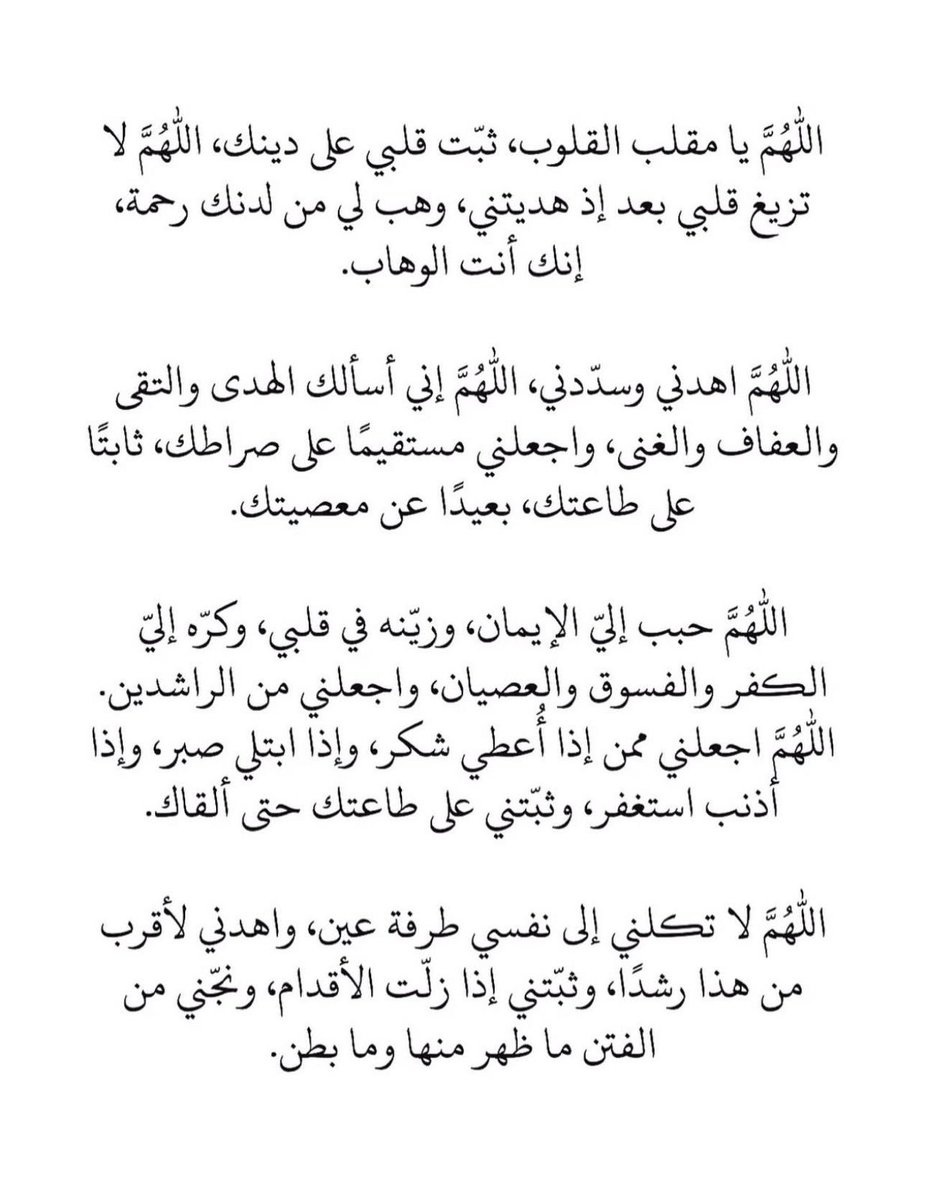 اللَّهُمَّ يا مقلب القلوب، ثبّت قلبي على دينك، اللَّهُمَّ لا
تزيغ قلبي بعد إذ هديتني، وهب لي من لدنك رحمة،
إنك أنت الوهاب.
اللَّهُمَّ اهدني وسدّدني، اللَّهُمَّ إني أسألك الهدى والتقى
والعفاف والغنى، واجعلني مستقيمًا على صراطك، ثابتًا
على طاعتك، بعيدًا عن معصيتك.
اللَّهُمَّ حبب إليّ الإيمان، وزيّنه في قلبي، وكرّه إليّ
الكفر والفسوق والعصيان، واجعلني من الراشدين.
اللَّهُمَّ اجعلني ممن إذا أُعطي شكر، وإذا ابتلي صبر، وإذا
أذنب استغفر، وثبّتني على طاعتك حتى ألقاك.
اللَّهُمَّ لا تكلني إلى نفسي طرفة عين، واهدني لأقرب
من هذا رشدًا، وثبّتني إذا زلّت الأقدام، ونجّني من
الفتن ما ظهر منها وما بطن.